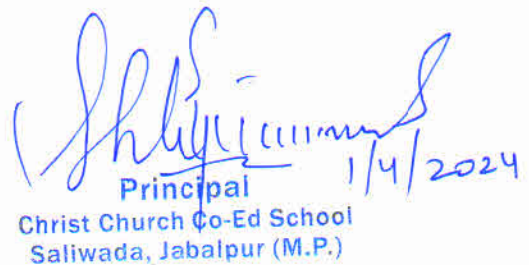 1/4/2024
Principal
Christ Church Co-Ed School
Saliwada, Jabalpur (M.P.)